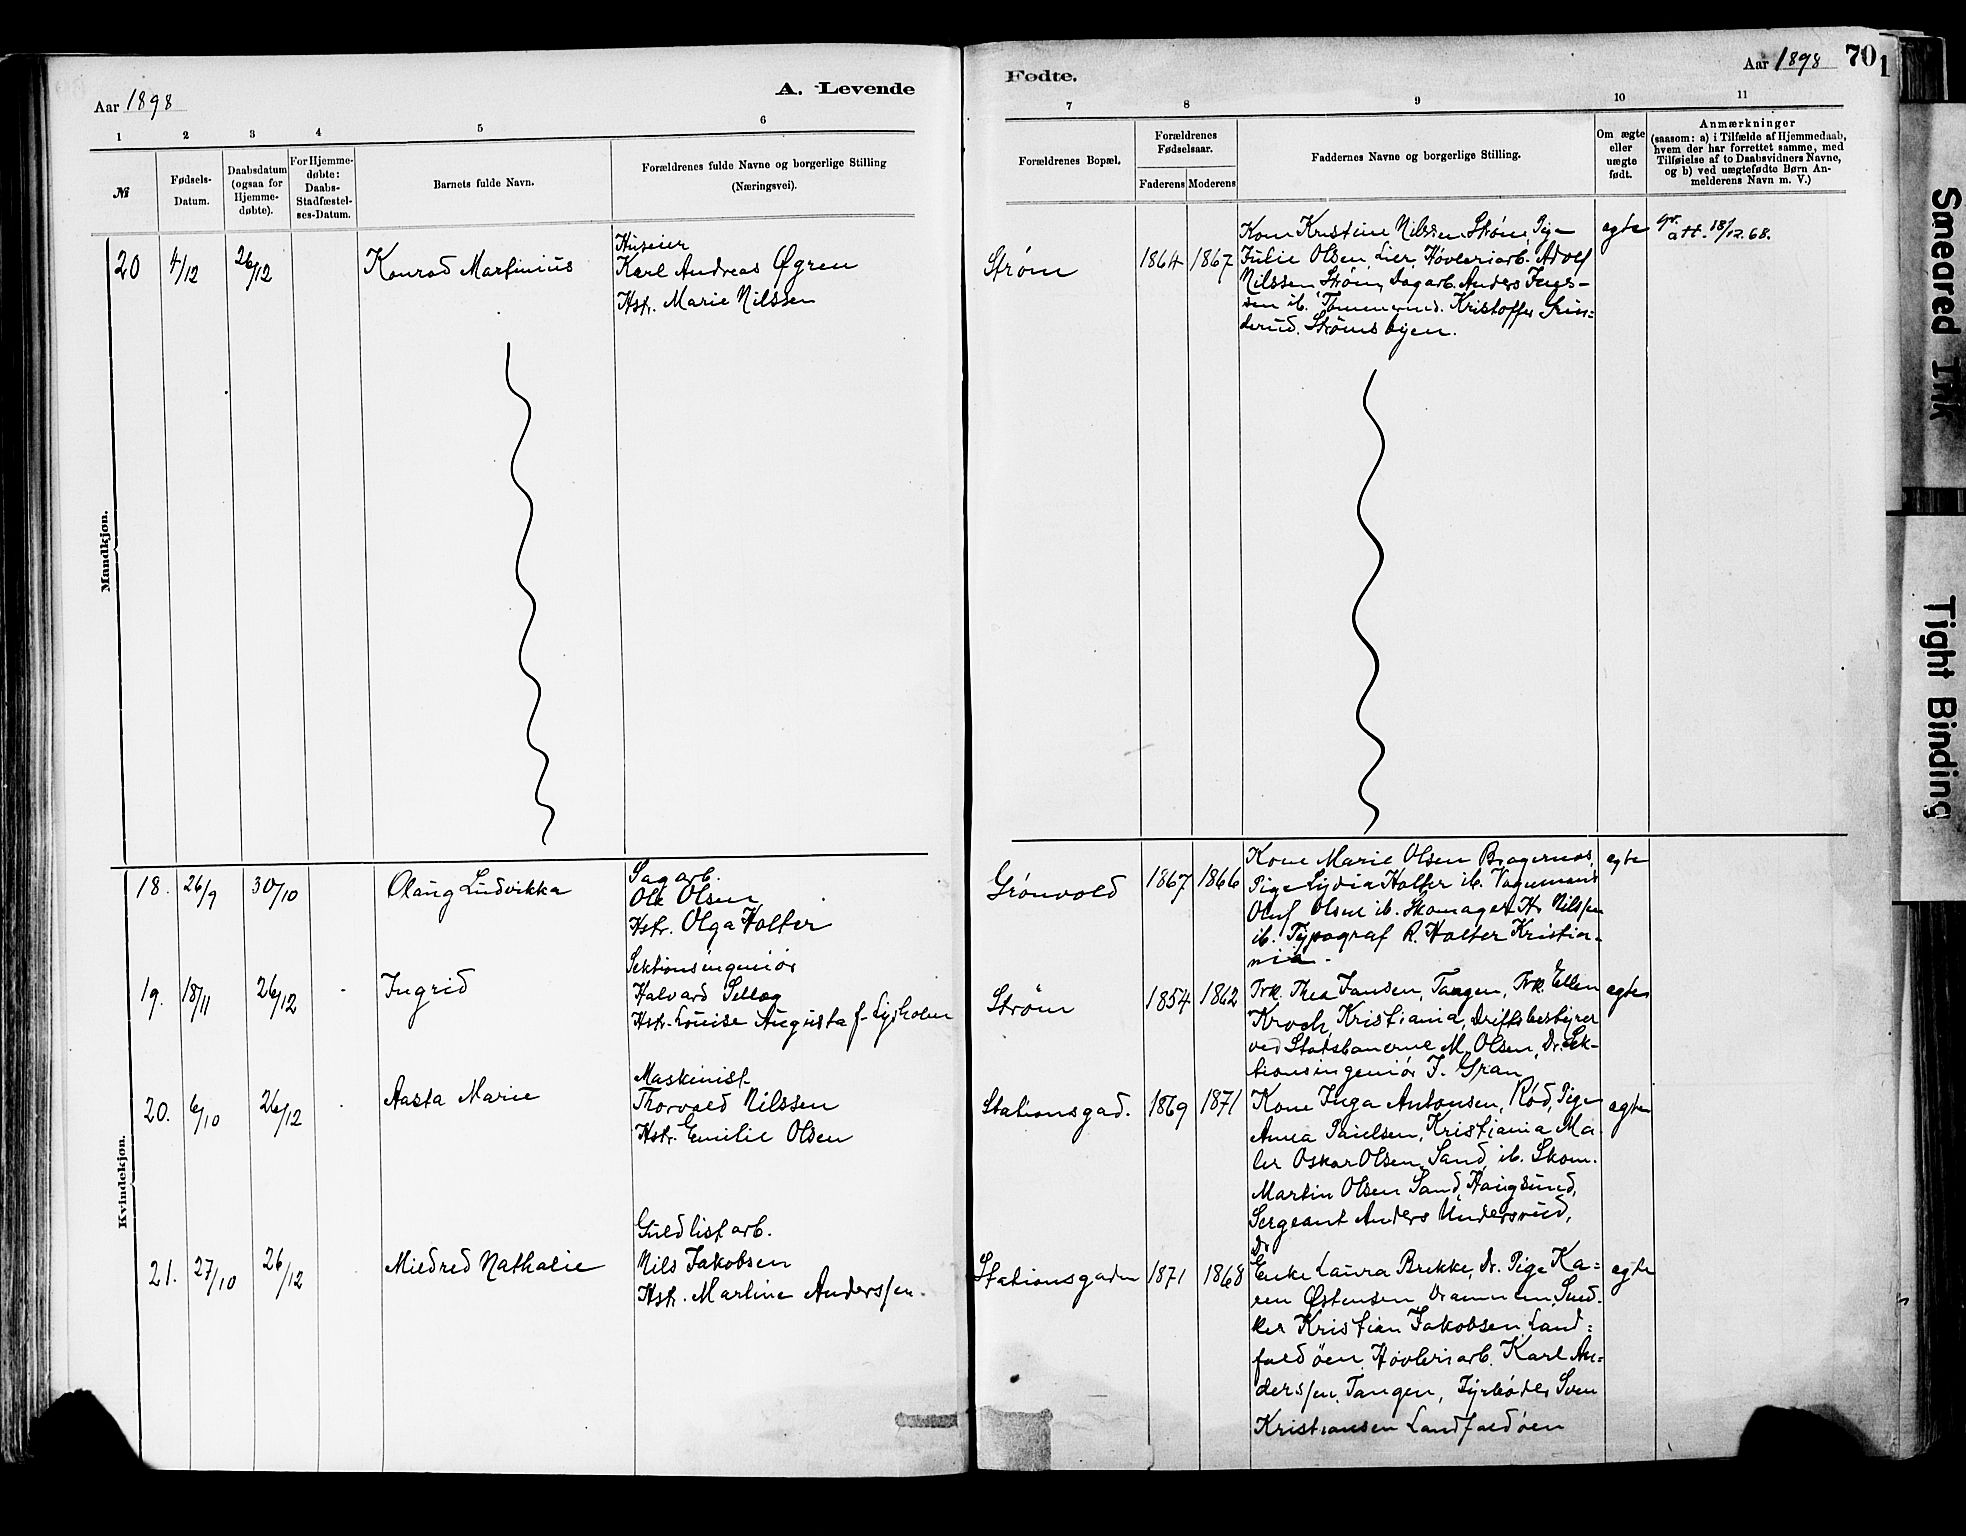 Aar 1898
A. Levende
1 2 3 4 5 6
№
Fødsels-
Datum.
Daabsdatum
(ogsaa for
Hjemme-
døbte).
For Hjemme-
døbte:
Daabs-
Stadfæstel-
ses-Datum.
Barnets fulde Navn.
Forældrenes fulde Navne og borgerlige Stilling
(Næringsvei).
Mandkjøn.
20 4/12 26/12 Konrad Martinius
Huseier
Karl Andreas Øgren
Hstr. Marie Nilssen
Kvindekjøn.
18. 26/9 30/10 Olaug Ludvikka
Sagarb.
Ole Olsen
Hstr. Olga Holter
19. 18/11 26/12 Ingrid
Sektionsingeniør
Halvard
Hstr. Louise Augusta f. Lysholm
20. 6/10 26/12 Aasta Marie
Maskinist
Thorvald Nilssen
Hstr. Emilie Olsen
21. 27/10 26/12 Mildred Nathalie
Guldlistarb.
Nils Jakobsen
Hstr. Martine Anderssen.
Fødte.
Aar 1898
70
1
7 8 9 10 11
Forældrenes Bopæl.
Forældrenes
Fødselsaar.
Faderens Moderens
Faddernes Navne og borgerlige Stilling.
Om ægte
eller
uægte
født.
Anmærkninger
(saasom: a) i Tilfælde af Hjemmedaab,
hvem der har forrettet samme, med
Tilføielse af to Daabsvidners Navne,
og b) ved uægtefødte Børn An-
melderens Navn m. V.)
Strøm 1864 1867
Kone Kristine Nilssen Strøm, Pige
Julie Olsen, Lier, Høvleriarb. Adolf
Nilssen Strøm, Dagarb. Anders
sen ib. Tømmermd. Kristoffer
Strømsbyen.
egte
att. 18/12.68.
Grønvold 1867 1866
Kone Marie Olsen Bragernes,
Pige Lydia Holter ib. Vognmand
Oluf Olsen ib. Skomager Kr. Nilssen
ib. Typograf R. Holter Kristia-
nia.
egte
Strøm 1854 1862
Frk. Thea Jansen, Tangen, Frk. Ellen
Kristiania, Driftsbestyrer
ved Statsbanerne M. Olsen, Dr. Sek-
tionsingeniør J. Gran
egte
Stationsgad. 1869 1871
Kone Inga Antonsen, Rød, Pige
Anna Kristiania Ma
ler Oskar Olsen Sand, ib. Skom.
Martin Olsen Sand, Haugsund,
Sergeant Anders
Dr
egte
Stationsgaden 1871 1868
Enke Laura Brekke, Dr. Pige Ka=
ren Østensen Drammen, Sned-
ker Kristian Jakobsen Land=
faldøen, Høvleriarb. Karl An=
derssen, Tangen, Fyrbøder Sven
Kristiansen Landfaldøen
egte
Smeared Ink
Tight Binding